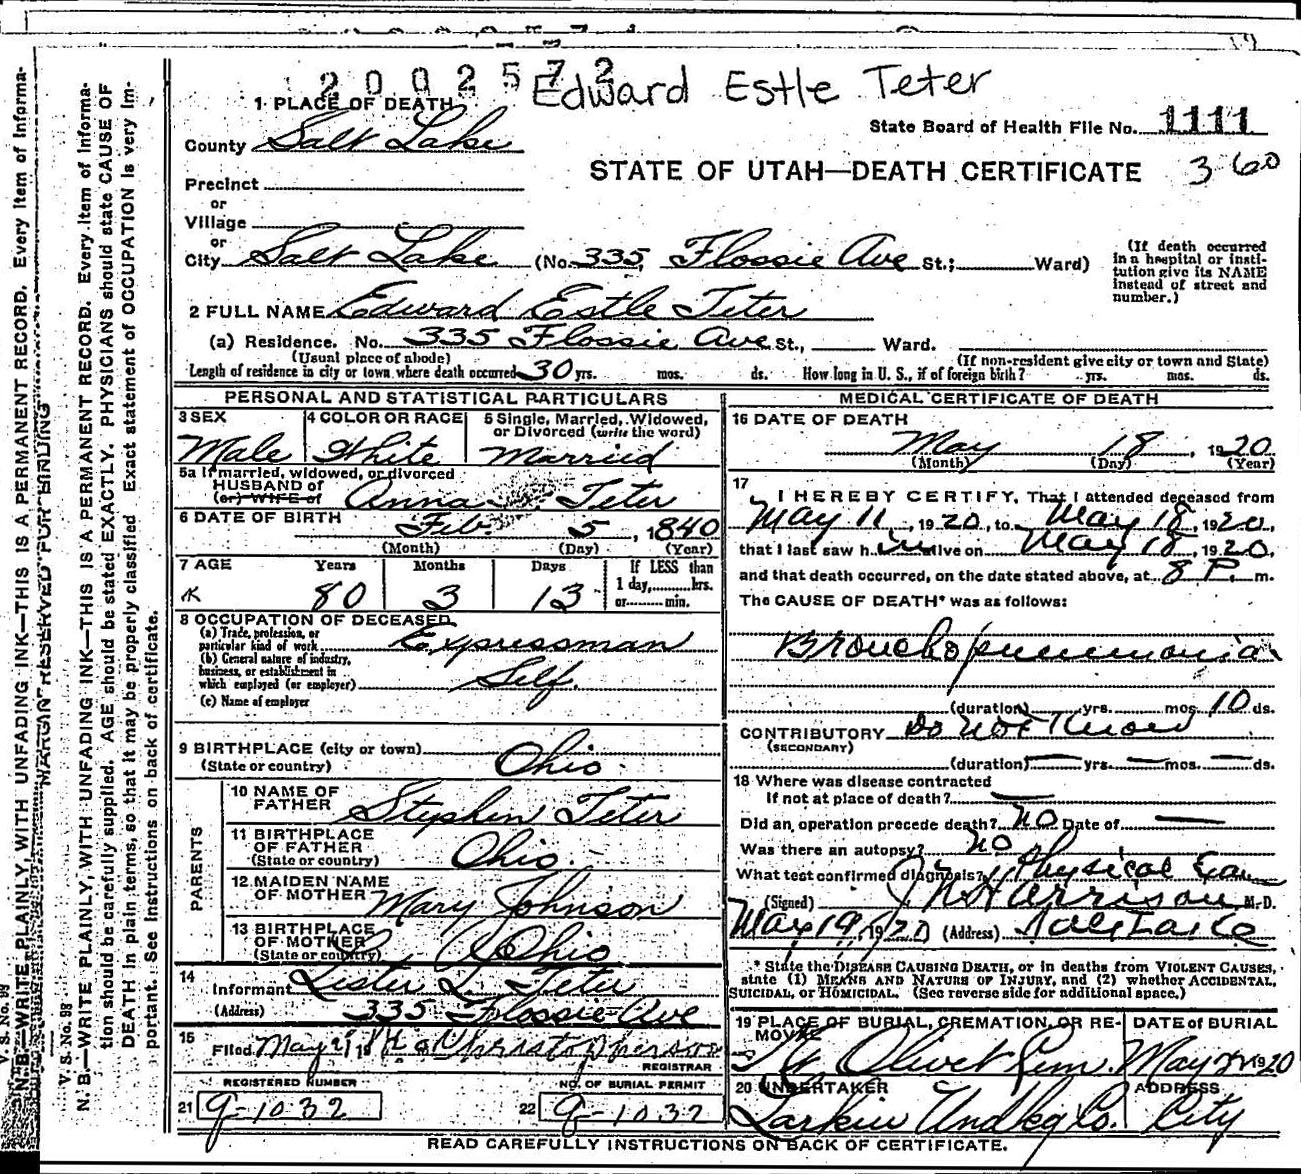 2002572 Edward Estle Teter
1 PLACE OF DEATH
State Board of Health File No. 1111
County Salt Lake
STATE OF UTAH—DEATH CERTIFICATE 360
Precinct
or
Village
or
City Salt Lake (No. 335, Flossie Ave St.; Ward)
(If death occurred in a hospital or institution give its NAME instead of street and number.)
2 FULL NAME Edward Estle Teter
(a) Residence. No. 335 Flossie Ave St., Ward.
(Usual place of abode) (If non-resident give city or town and State)
Length of residence in city or town where death occurred 30 yrs. mos. ds. How long in U. S., if of foreign birth? yrs. mos. ds.
PERSONAL AND STATISTICAL PARTICULARS
3 SEX 4 COLOR OR RACE 5 Single, Married, Widowed, or Divorced (write the word)
Male White Married
5a If married, widowed, or divorced
HUSBAND of
(or) WIFE of Anna Teter
6 DATE OF BIRTH Feb. 5, 1840
(Month) (Day) (Year)
7 AGE Years Months Days If LESS than
1 day, hrs.
or min.
80 3 13
8 OCCUPATION OF DECEASED
(a) Trade, profession, or
particular kind of work Expressman
(b) General nature of industry,
business, or establishment in
which employed (or employer) Self.
(c) Name of employer
9 BIRTHPLACE (city or town)
(State or country) Ohio
PARENTS
10 NAME OF
FATHER Stephen Teter
11 BIRTHPLACE
OF FATHER
(State or country) Ohio.
12 MAIDEN NAME
OF MOTHER Mary Johnson
13 BIRTHPLACE
OF MOTHER
(State or country) Ohio
14
Informant Lester L. Teter
(Address) 335 Flossie Ave
15
Filed May 19
REGISTRAR
REGISTERED NUMBER NO. OF BURIAL PERMIT
21 9-1032 22 9-1032
MEDICAL CERTIFICATE OF DEATH
16 DATE OF DEATH
May 18, 1920
(Month) (Day) (Year)
17
I HEREBY CERTIFY, That I attended deceased from
May 11, 1920, to May 18, 1920,
that I last saw him alive on May 18, 1920,
and that death occurred, on the date stated above, at 8 P. m.
The CAUSE OF DEATH* was as follows:
Bronchopneumonia
(duration) yrs. mos. 10 ds.
CONTRIBUTORY Do Not Know
(SECONDARY)
(duration) — yrs. — mos. — ds.
18 Where was disease contracted
If not at place of death? —
Did an operation precede death? No Date of —
Was there an autopsy? No
What test confirmed diagnosis? Physical Exam
(Signed) J N Harrison M.D.
May 19, 1920 (Address) Salt Lake
* State the DISEASE CAUSING DEATH, or in deaths from VIOLENT CAUSES,
state (1) MEANS AND NATURE OF INJURY, and (2) whether ACCIDENTAL,
SUICIDAL, or HOMICIDAL. (See reverse side for additional space.)
19 PLACE OF BURIAL, CREMATION, OR RE-
MOVAL DATE of BURIAL
Mt Olivet Cem. May 22 1920
20 UNDERTAKER ADDRESS
Larkin Undkg Co. City
READ CAREFULLY INSTRUCTIONS ON BACK OF CERTIFICATE.
V. S. No. 98
N. B.—WRITE PLAINLY, WITH UNFADING INK—THIS IS A PERMANENT RECORD. Every item of informa-
MARGIN RESERVED FOR BINDING
V. S. No. 98
N. B.—WRITE PLAINLY, WITH UNFADING INK—THIS IS A PERMANENT RECORD. Every item of informa-
tion should be carefully supplied. AGE should be stated EXACTLY. PHYSICIANS should state CAUSE OF
DEATH in plain terms, so that it may be properly classified. Exact statement of OCCUPATION is very im-
portant. See instructions on back of certificate.